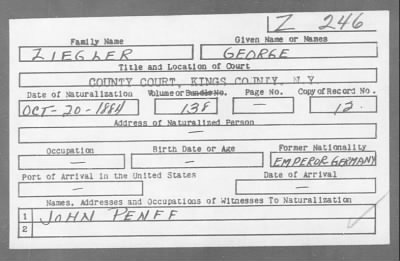 Z 246
Family Name Given Name or Names
ZIEGLER GEORGE
Title and Location of Court
COUNTY COURT, KINGS COUNTY, N.Y.
Date of Naturalization Volume or Bundle No. Page No. Copy of Record No.
OCT-20-1884 138 — 12
Address of Naturalized Person
—
Occupation Birth Date or Age Former Nationality
— — EMPEROR GERMANY
Port of Arrival in the United States Date of Arrival
— —
Names, Addresses and Occupations of Witnesses To Naturalization
1 JOHN PENFF
2